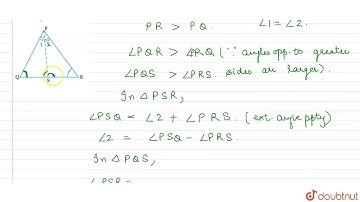 P
1 2
Q S R
PR > PQ. ∠1 = ∠2.
∠PQR > ∠PRQ (∵ angles opp. to greater
∠PQS > ∠PRS. sides are larger).
In △PSR,
∠PSQ = ∠2 + ∠PRS. (ext. angle ppty)
∠2 = ∠PSQ - ∠PRS.
In △PQS,
doubtnut